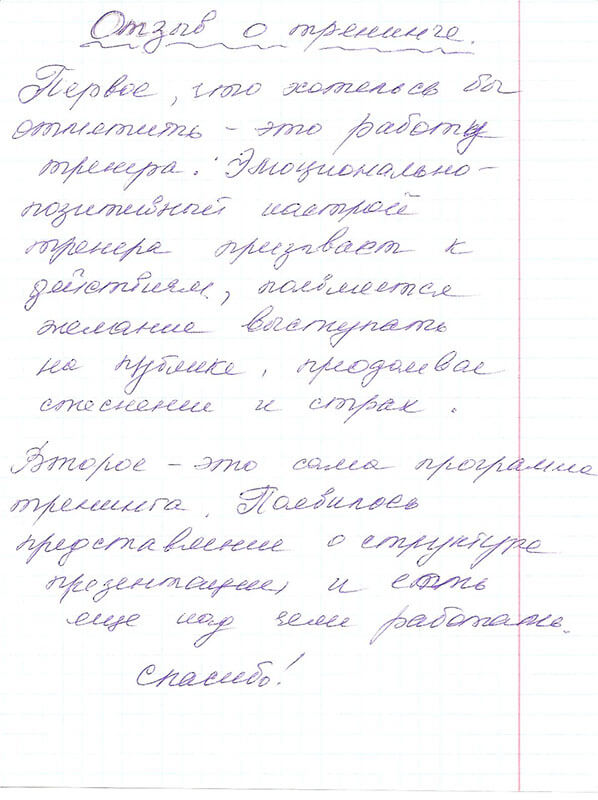 Отзыв о тренинге.
Первое, что хотелось бы
отметить - это работу
тренера. Эмоционально-
позитивный настрой
тренера призывает к
действиям, появляется
желание выступать
на публике, преодолевая
стеснение и страх.
Второе - это сама программа
тренинга. Появилось
представление о структуре
презентации, и есть
еще над чем работать.
Спасибо!